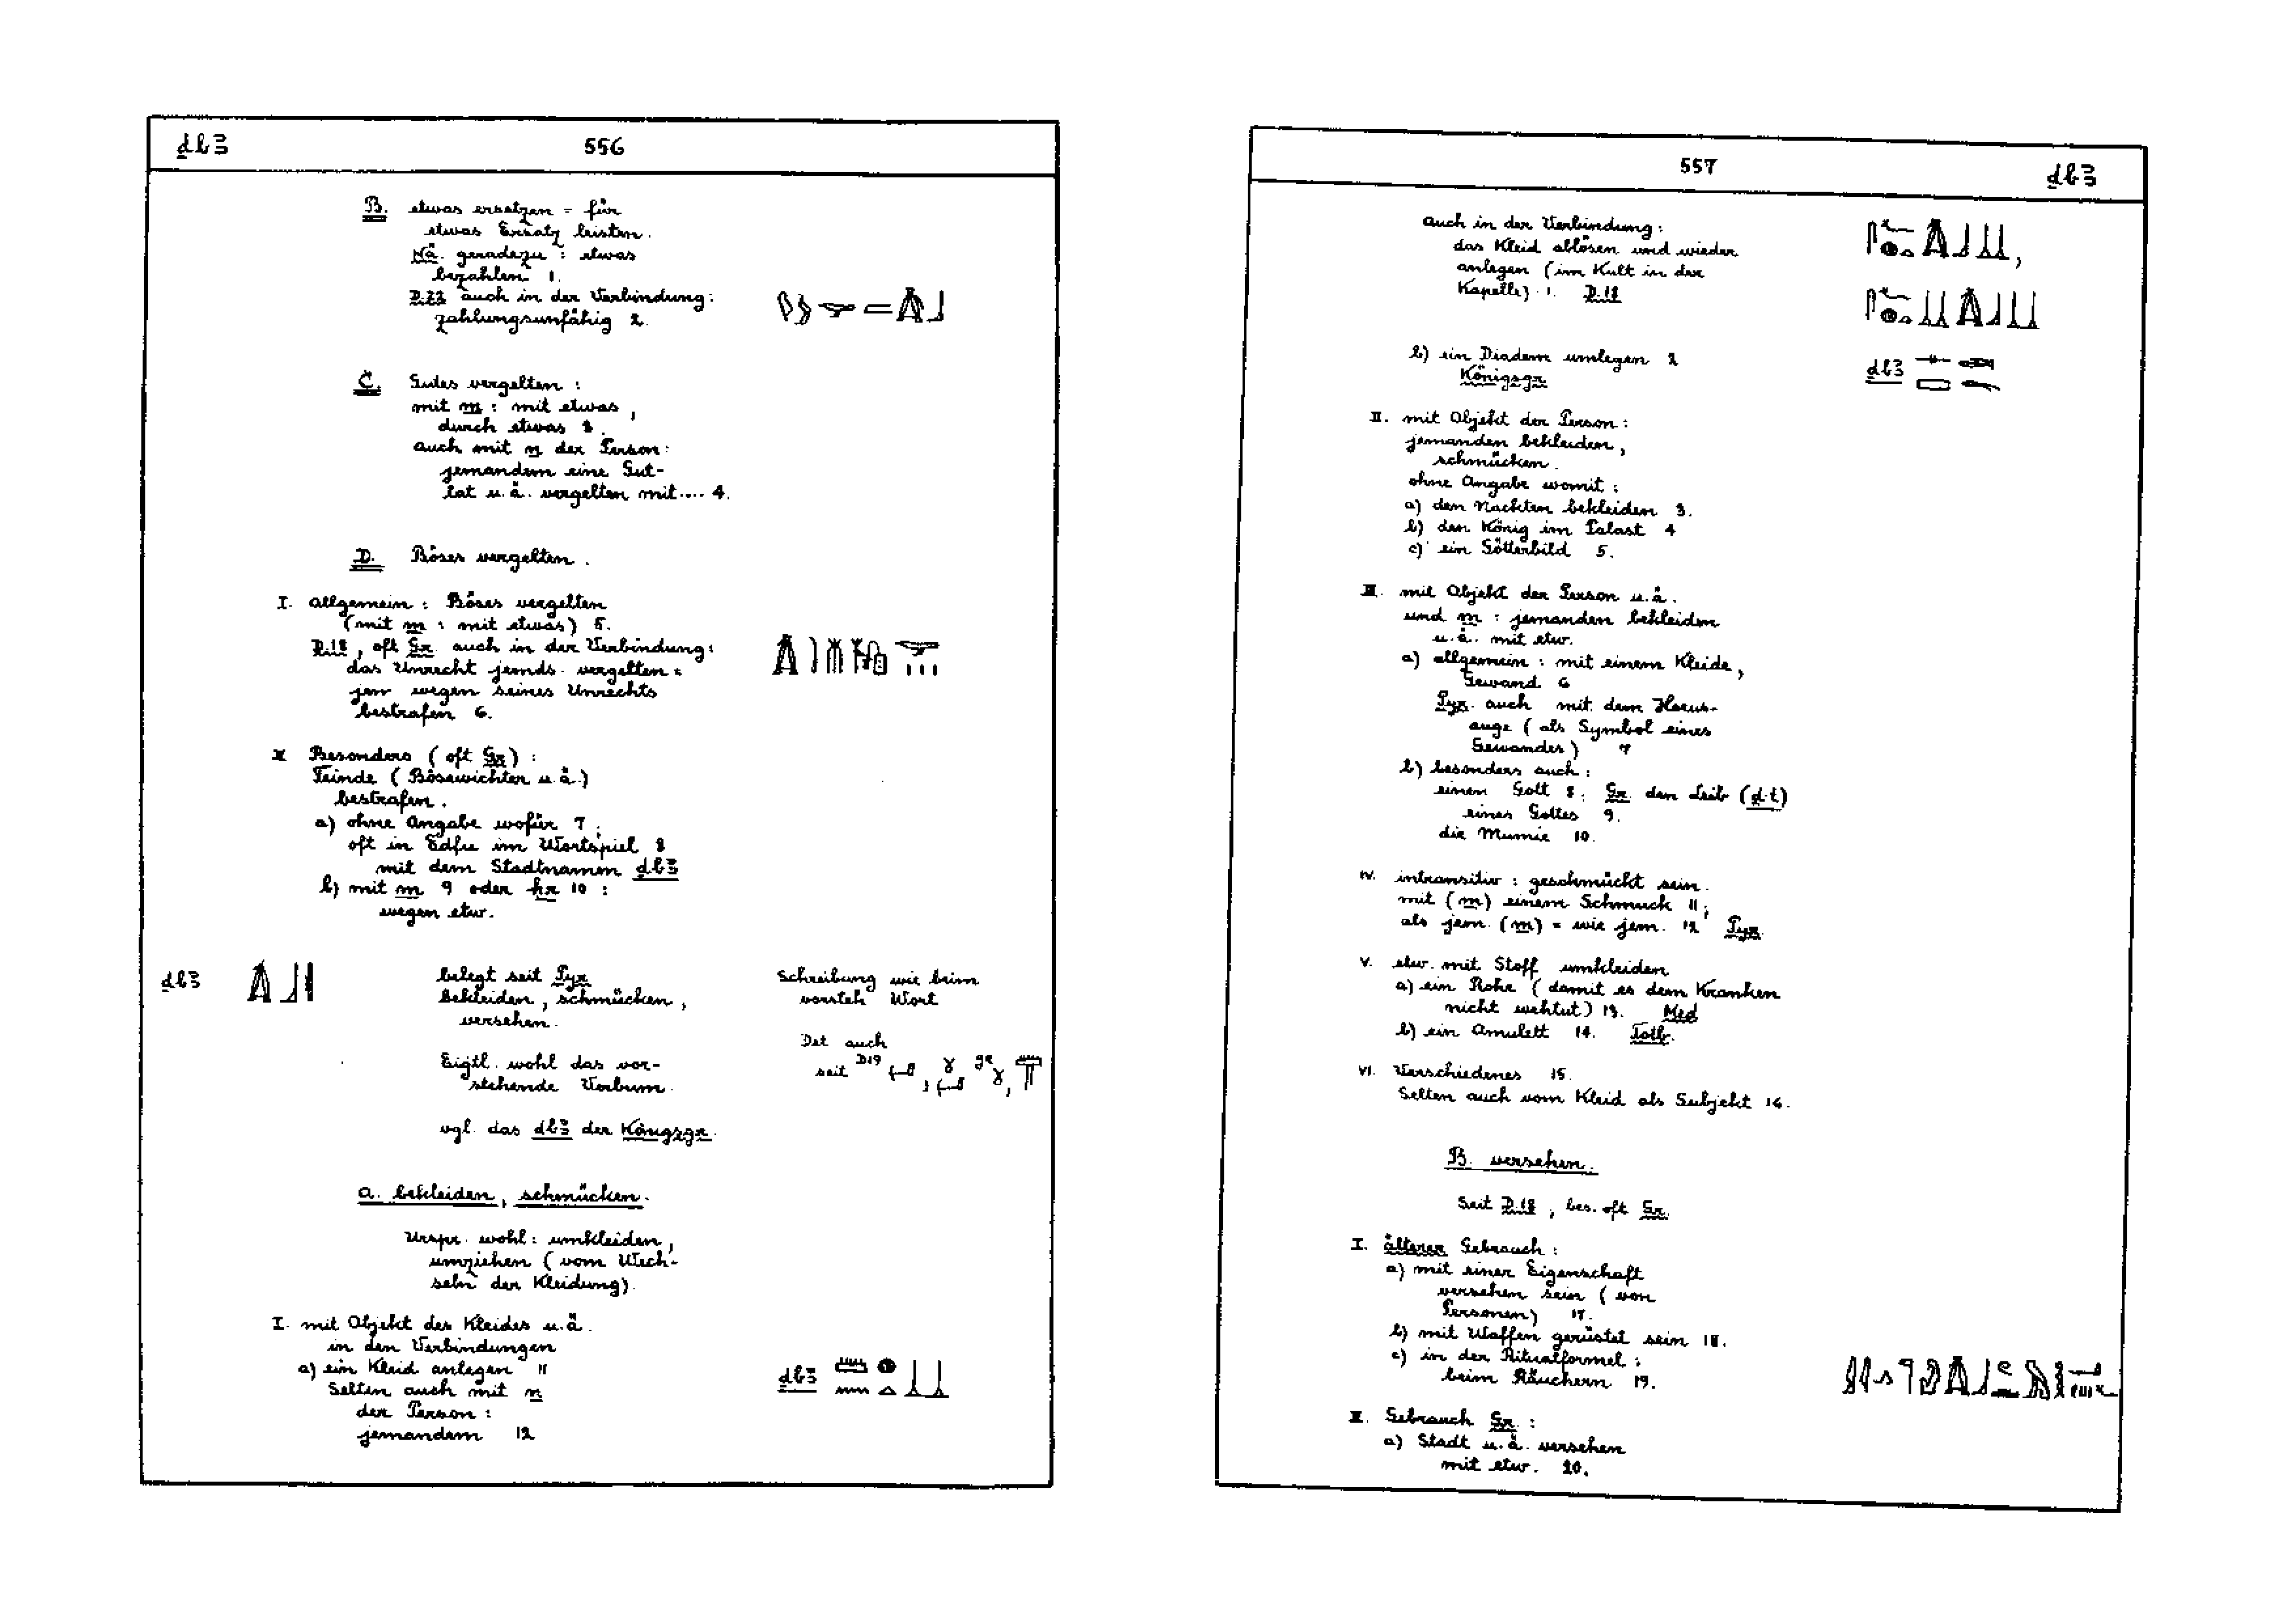 ḏbꜣ 556
B. etwas ersetzen = für
etwas Ersatz leisten.
Nä. geradezu : etwas
bezahlen 1.
D.22 auch in der Verbindung:
zahlungsunfähig 2.
C. Gutes vergelten :
mit m : mit etwas,
durch etwas 3.
auch mit n der Person:
jemandem eine Gut-
tat u.ä. vergelten mit.... 4.
D. Böses vergelten.
I. allgemein : Böses vergelten
(mit m : mit etwas) 5.
D.18, oft Gr. auch in der Verbindung:
das Unrecht jemds. vergelten =
jem wegen seines Unrechts
bestrafen 6.
II Besonders (oft Gr) :
Feinde (Bösewichter u.ä.)
bestrafen.
a) ohne Angabe wofür 7;
oft in Edfu im Wortspiel 8
mit dem Stadtnamen ḏbꜣ
b) mit m 9 oder ḥr 10 :
wegen etw.
ḏbꜣ
belegt seit Pyr
bekleiden, schmücken,
versehen.
Schreibung wie beim
vorsteh Wort
Det auch
seit D19
Eigtl. wohl das vor-
stehende Verbum.
vgl. das ḏbꜣ der Königsgr.
A. bekleiden, schmücken.
Urspr. wohl: umkleiden,
umziehen (vom Wech-
seln der Kleidung).
I. mit Objekt des Kleides u.ä.
in den Verbindungen
a) ein Kleid anlegen 11
ḏbꜣ
Selten auch mit n
der Person :
jemandem 12
557 ḏbꜣ
auch in der Verbindung:
das Kleid ablösen und wieder
anlegen (im Kult in der
Kapelle) 1. D.18
b) ein Diadem umlegen 2
Königsgr
ḏbꜣ
II. mit Objekt der Person :
jemanden bekleiden,
schmücken.
ohne Angabe womit :
a) den Nackten bekleiden 3.
b) den König im Palast 4
c) ein Götterbild 5.
III. mit Objekt der Person u.ä.
und m : jemanden bekleiden
u.ä. mit etw.
a) allgemein : mit einem Kleide,
Gewand 6
Pyr. auch mit dem Horus-
auge (als Symbol eines
Gewandes) 7
b) besonders auch :
einen Gott 8; Gr. den Leib (ḏ.t)
eines Gottes 9.
die Mumie 10.
IV. intransitiv : geschmückt sein.
mit (m) einem Schmuck 11;
als jem. (m) = wie jem. 12 Pyr.
V. etw. mit Stoff umkleiden
a) ein Rohr (damit es dem Kranken
nicht wehtut) 13. Med
b) ein Amulett 14. Totb.
VI. Verschiedenes 15.
Selten auch vom Kleid als Subjekt 16.
B. versehen.
Seit D.18, bes. oft Gr.
I. älterer Gebrauch :
a) mit einer Eigenschaft
versehen sein (von
Personen) 17.
b) mit Waffen gerüstet sein 18.
c) in der Ritualformel :
beim Räuchern 19.
II. Gebrauch Gr. :
a) Stadt u.ä. versehen
mit etw. 20.